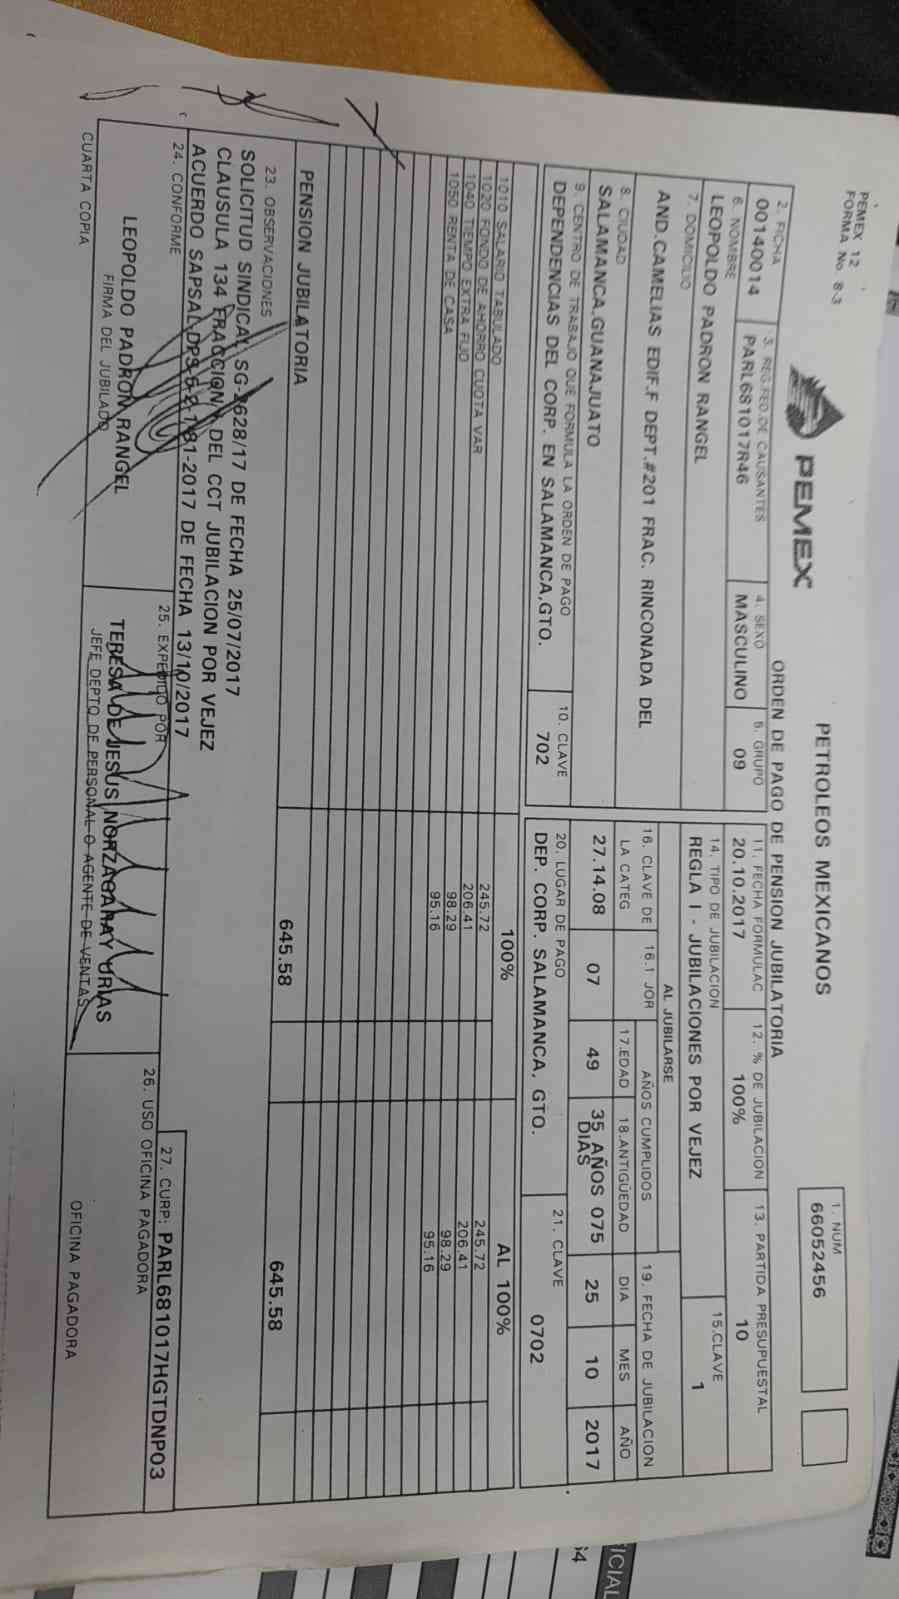 PEMEX 12
FORMA No 8-3
PEMEX
PETROLEOS MEXICANOS
ORDEN DE PAGO DE PENSION JUBILATORIA
1. NUM
66052456
2. FICHA
00140014
3. REG.FED.DE CAUSANTES
PARL681017R46
4. SEXO
MASCULINO
5. GRUPO
09
6. NOMBRE
LEOPOLDO PADRON RANGEL
7. DOMICILIO
AND.CAMELIAS EDIF.F DEPT.#201 FRAC. RINCONADA DEL
8. CIUDAD
SALAMANCA,GUANAJUATO
9. CENTRO DE TRABAJO QUE FORMULA LA ORDEN DE PAGO
DEPENDENCIAS DEL CORP. EN SALAMANCA,GTO.
10. CLAVE
702
11. FECHA FORMULAC
20.10.2017
12. % DE JUBILACION
100%
13. PARTIDA PRESUPUESTAL
10
14. TIPO DE JUBILACION
REGLA I - JUBILACIONES POR VEJEZ
15.CLAVE
1
AL JUBILARSE
16. CLAVE DE LA CATEG
27.14.08
16.1 JOR
07
AÑOS CUMPLIDOS
17.EDAD
49
18.ANTIGÜEDAD
35 AÑOS 075
DIAS
19. FECHA DE JUBILACION
DIA MES AÑO
25 10 2017
20. LUGAR DE PAGO
DEP. CORP. SALAMANCA, GTO.
21. CLAVE
0702
100% AL 100%
1010 SALARIO TABULADO 245.72 245.72
1020 FONDO DE AHORRO CUOTA VAR 206.41 206.41
1040 TIEMPO EXTRA FIJO 98.29 98.29
1050 RENTA DE CASA 95.16 95.16
PENSION JUBILATORIA 645.58 645.58
23. OBSERVACIONES
SOLICITUD SINDICAL SG-2628/17 DE FECHA 25/07/2017
CLAUSULA 134 FRACCION DEL CCT JUBILACION POR VEJEZ
ACUERDO DE FECHA 13/10/2017
24. CONFORME
LEOPOLDO PADRON RANGEL
FIRMA DEL JUBILADO
25. EXPEDIDO POR
TERESA DE JESUS NORZAGARAY URIAS
JEFE DEPTO DE PERSONAL O AGENTE DE VENTAS
26. USO OFICINA PAGADORA
27. CURP: PARL681017HGTDNP03
OFICINA PAGADORA
CUARTA COPIA
ICIAL